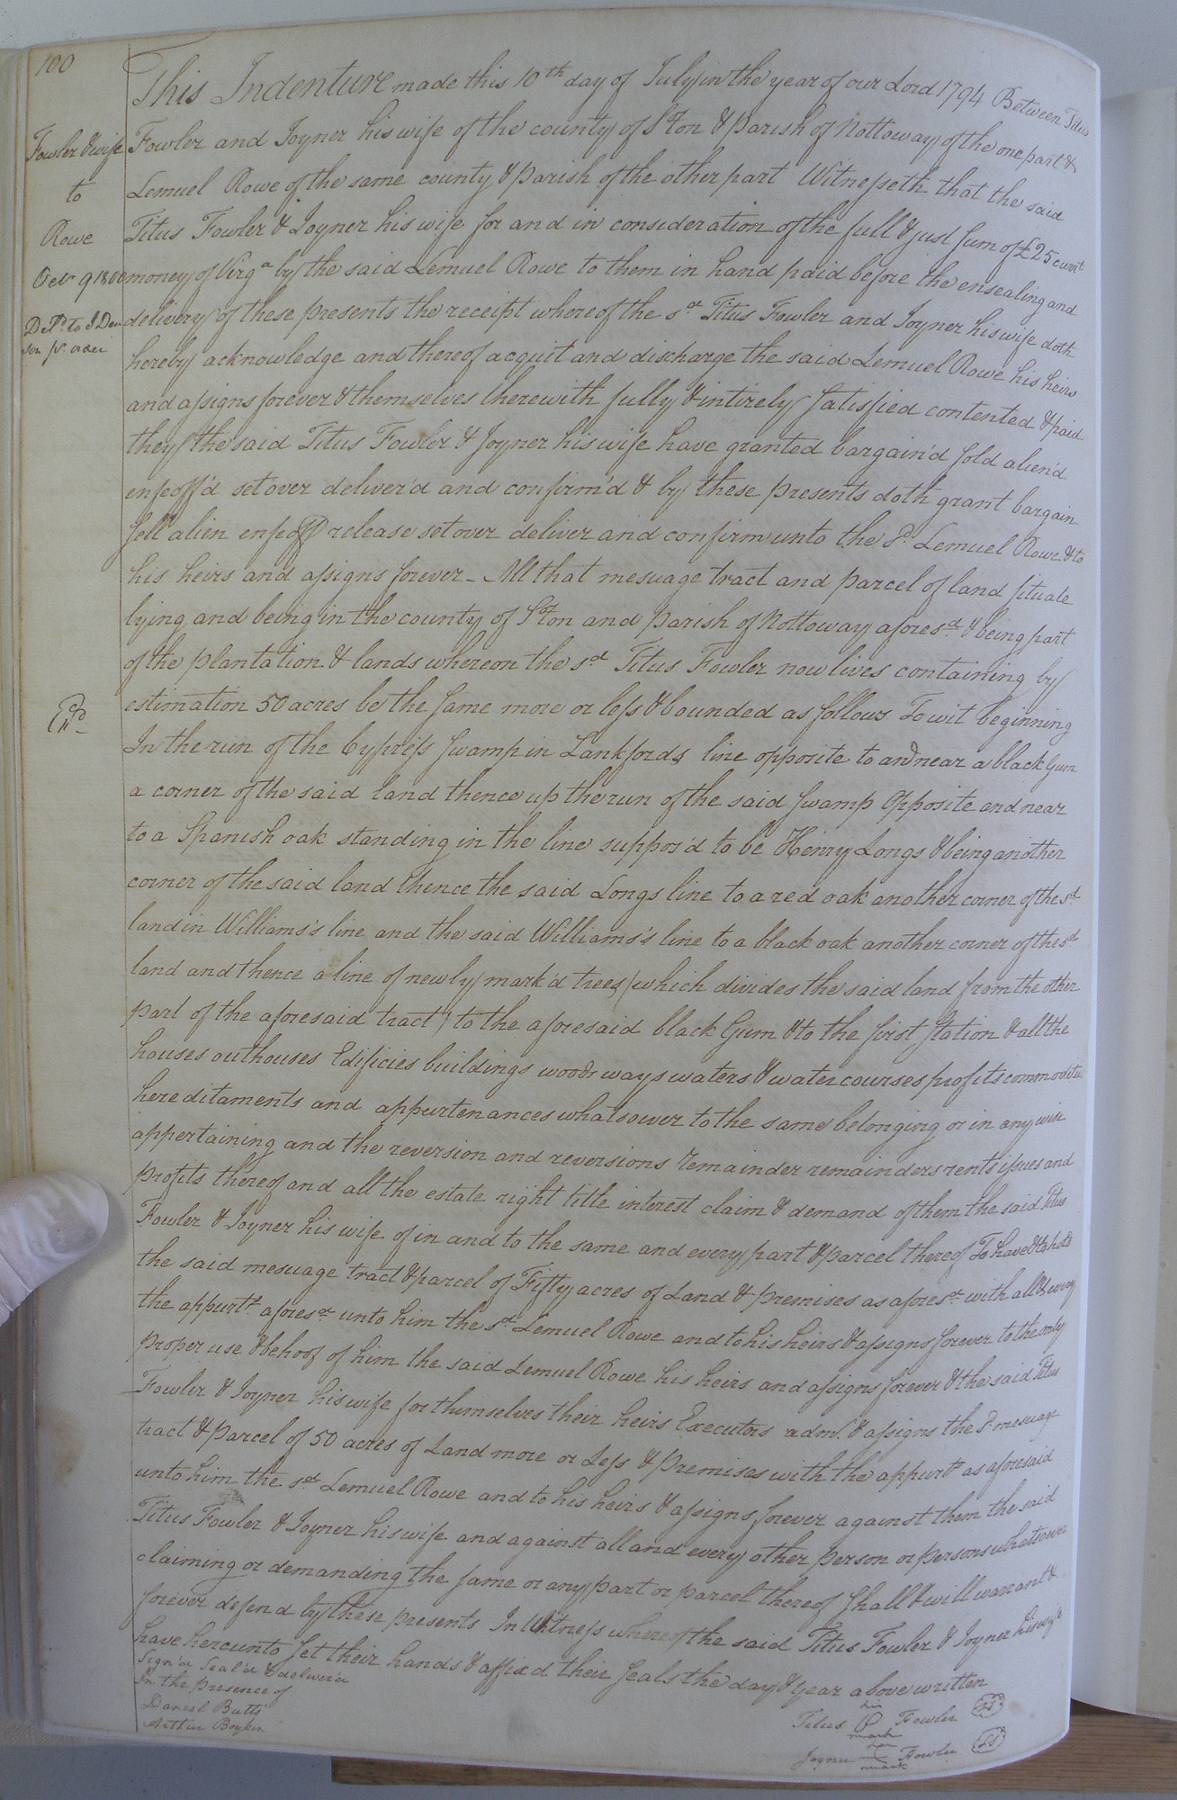 100
Fowler & wife
to
Rowe
Octr 9 1800
Deld to J Den
son pr order
Exd
This Indenture made this 10th day of July in the year of our Lord 1794 Between Titus
Fowler and Joyner his wife of the county of S'ton & parish of Nottoway of the one part &
Lemuel Rowe of the same county & parish of the other part Witnesseth that the said
Titus Fowler & Joyner his wife for and in consideration of the full & just sum of £25 currt
money of Virga by the said Lemuel Rowe to them in hand paid before the ensealing and
delivery of these presents the receipt whereof the sd Titus Fowler and Joyner his wife doth
hereby acknowledge and thereof acquit and discharge the said Lemuel Rowe his heirs
and assigns forever & themselves therewith fully & intirely satisfied contented & paid
they the said Titus Fowler & Joyner his wife have granted bargain'd sold alien'd
enfeoff'd set over deliver'd and confirm'd & by these presents doth grant bargain
sell alien enfeoff release set over deliver and confirm unto the sd Lemuel Rowe & to
his heirs and assigns forever - All that mesuage tract and parcel of land situate
lying and being in the county of S'ton and parish of Nottoway aforesd & being part
of the plantation & lands whereon the sd Titus Fowler now lives containing by
estimation 50 acres be the same more or less & bounded as follows To wit beginning
In the run of the Cypress swamp in Lankfords line opposite to and near a black Gum
a corner of the said land thence up the run of the said swamp Opposite and near
to a Spanish oak standing in the line suppos'd to be Henry Longs & being another
corner of the said land thence the said Longs line to a red oak another corner of the sd
land in Williams's line and the said Williams's line to a black oak another corner of the sd
land and thence a line of newly mark'd trees (which divides the said land from the other
part of the aforesaid tract) to the aforesaid black Gum & to the first station & all the
houses outhouses Edificies buildings woods ways waters & water courses profits commodities
hereditaments and appurtenances whatsoever to the same belonging or in any wise
appertaining and the reversion and reversions remainder remainders rents issues and
profits thereof and all the estate right title interest claim & demand of them the said Titus
Fowler & Joyner his wife of in and to the same and every part & parcel thereof To have & to hold
the said mesuage tract & parcel of Fifty acres of Land & premises as aforesd with all & every
the appurts aforesd unto him the sd Lemuel Rowe and to his heirs & assigns forever to the only
proper use & behoof of him the said Lemuel Rowe his heirs and assigns forever & the said Titus
Fowler & Joyner his wife for themselves their heirs Executors adms & assigns the sd mesuage
tract & parcel of 50 acres of Land more or Less & premises with the appurts as aforesaid
unto him the sd Lemuel Rowe and to his heirs & assigns forever against them the said
Titus Fowler & Joyner his wife and against all and every other person or persons whatsoever
claiming or demanding the same or any part or parcel thereof shall & will warrant &
forever defend by these presents In Witness whereof the said Titus Fowler & Joyner his wife
have hereunto set their hands & affixd their seals the day & year above written
Sign'd Seal'd & deliver'd
In the presence of
Daniel Butts
Arthur Boykin
his
Titus P Fowler LS
mark
her
Joyner Fowler LS
mark